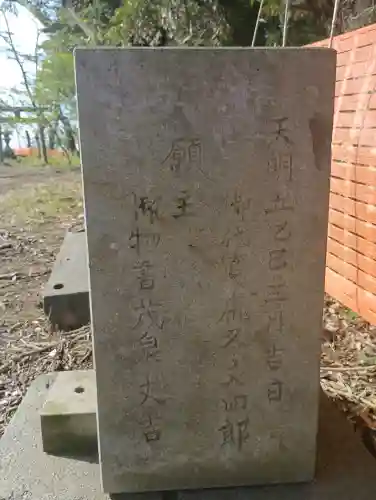 天明五乙巳三月吉日
御代官 又八四郎
願主
御物書 茂泉丈吉